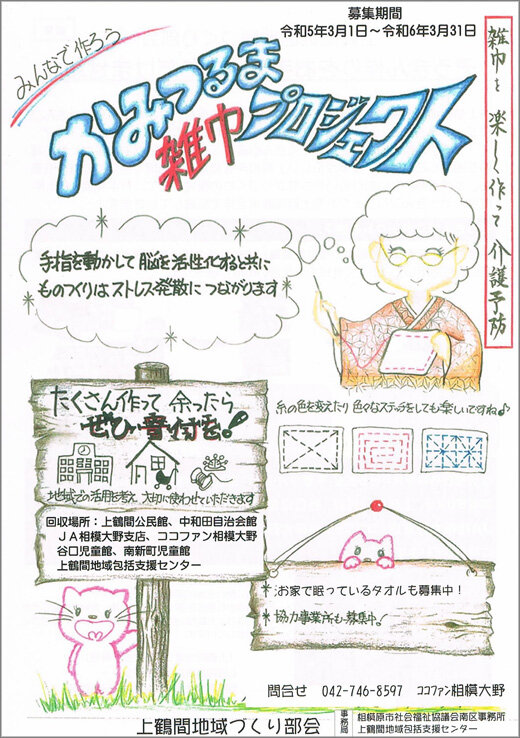 募集期間
令和5年3月1日～令和6年3月31日
みんなで作ろう
かみつるま
雑巾プロジェクト
雑巾を楽しく作って介護予防
手指を動かして脳を活性化すると共に
ものつくりはストレス発散につながります
たくさん作って余ったら
ぜひ寄付を!
地域での活用を考え、大切に使わせていただきます
回収場所：上鶴間公民館、中和田自治会館
ＪＡ相模大野支店、ココファン相模大野
谷口児童館、南新町児童館
上鶴間地域包括支援センター
糸の色を変えたり色々なステッチをしても楽しいですね♪
* お家で眠っているタオルも募集中！
* 協力事業所も募集中!
問合せ 042-746-8597 ココファン相模大野
上鶴間地域づくり部会
事務局
相模原市社会福祉協議会南区事務所
上鶴間地域包括支援センター